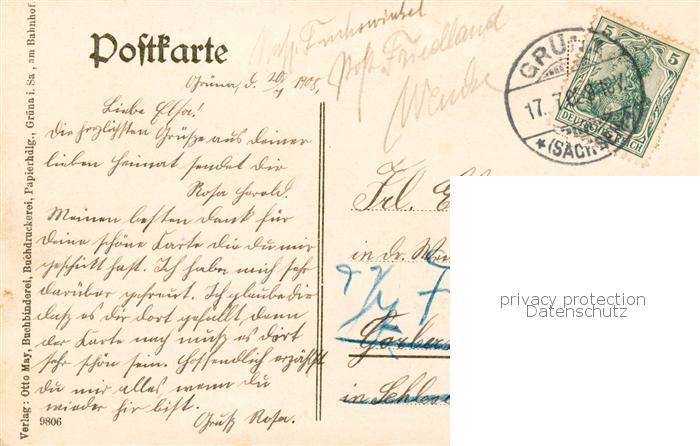 Postkarte
Grüna, d.
1908.
Liebe Elsa!
Die herzlichsten Grüße aus deiner
lieben Heimat sendet dir
Rosa Herold.
Meinen besten Dank für
Deine schöne Karte die du mir
geschickt hast. Ich habe mich sehr
darüber gefreut. Ich glaube dir
daß es dir dort gefällt denn
der Karte nach muß es dort
sehr schön sein. Hoffendlich erzählst
du mir alles wenn du
wieder hir bist.
Gruß Rosa.
9806
Verlag: Otto May, Buchbinderei, Buchdruckerei, Papierhdlg., Grüna i. Sa., am Bahnhof.
Post Friedland
GRÜNA
17.7.
*(SACHS
5 5
DEUTSCHES REICH
Frl.
in
in
privacy protection
Datenschutz